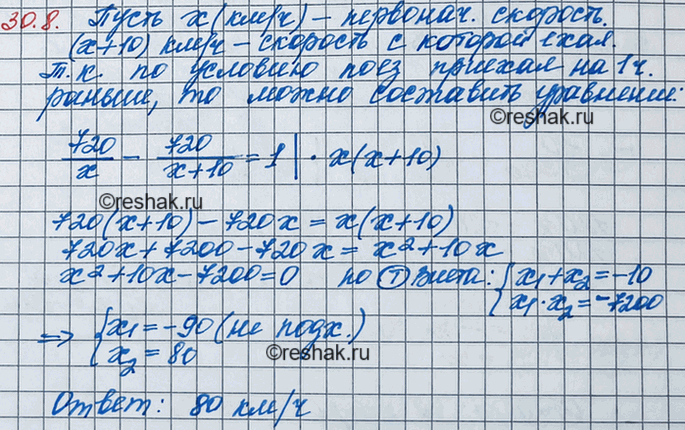 30.8. Пусть x (км/ч) – первонач. скорость.
(x+10) км/ч – скорость с которой ехал.
Т.к. по условию поез приехал на 1ч.
раньше, то можно составить уравнение:
©reshak.ru
720/x − 720/(x+10) = 1 | · x(x+10)
©reshak.ru
720(x+10) − 720x = x(x+10)
720x + 7200 − 720x = x² + 10x
x² + 10x − 7200 = 0 по Т Виета: { x₁ + x₂ = −10
x₁ · x₂ = −7200
⇒ { x₁ = −90 (не подх.)
x₂ = 80
©reshak.ru
Ответ: 80 км/ч